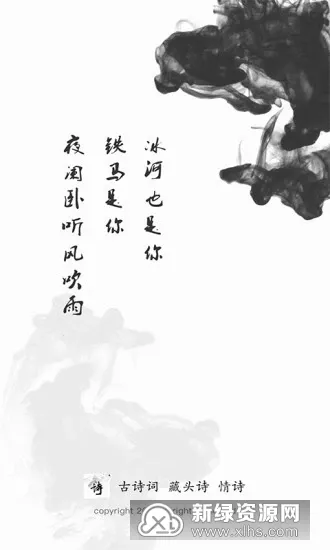 夜阑卧听风吹雨
铁马是你
冰河也是你
诗 古诗词 藏头诗 情诗
copyright
新绿资源网
www.xlhs.com